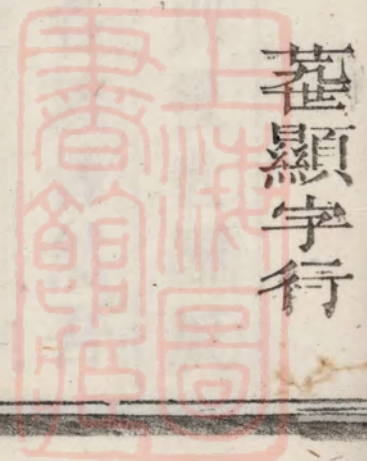 顯字行
上海圖
書館藏